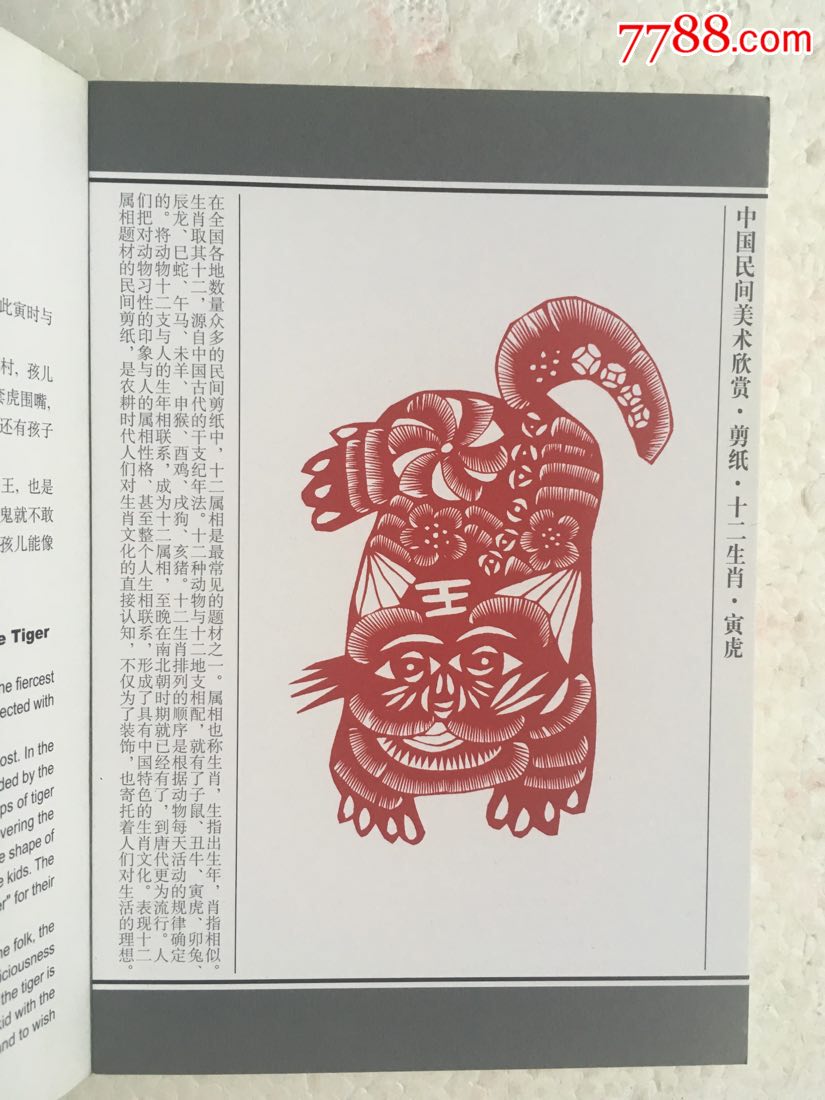 7788.com
此寅时与
村，孩儿
套虎围嘴，
还有孩子
王，也是
鬼就不敢
孩儿能像
e Tiger
he fiercest
ected with
ost. In the
ded by the
ps of tiger
vering the
e shape of
e kids. The
er" for their
he folk, the
iciousness
the tiger is
kid with the
and to wish
中国民间美术欣赏·剪纸·十二生肖·寅虎
王
在全国各地数量众多的民间剪纸中，十二属相是最常见的题材之一。属相也称生肖，生指出生年，肖指相似。
生肖取其十二，源自中国古代的干支纪年法。十二种动物与十二地支相配，就有了子鼠、丑牛、寅虎、卯兔、
辰龙、巳蛇、午马、未羊、申猴、酉鸡、戌狗、亥猪。十二生肖排列的顺序是根据动物每天活动的规律确定
的。将动物十二支与人的生年相联系，成为十二属相，至晚在南北朝时期就已经有了，到唐代更为流行。人
们把对动物习性的印象与人的属相性格、甚至整个人生相联系，形成了具有中国特色的生肖文化。表现十二
属相题材的民间剪纸，是农耕时代人们对生肖文化的直接认知，不仅为了装饰，也寄托着人们对生活的理想。